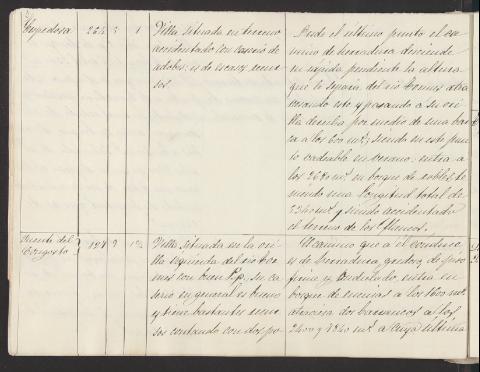 Cespedosa 264 3 1 Villa situada en terreno
accidentado con caserío de
adobes: es de escasos recur-
sos.
Desde el último punto el ca-
mino de herradura desciende
en rápida pendiente la altura
que le separa del río Tormes atra
vesando este y pasando a su ori
lla derecha por medio de una bar
ca a los 600 mts; siendo en este pun
to vadeable en verano: entra a
los 2680 mts en bosque de robles, te
niendo una longitud total de
mts y siendo accidentado
el terreno de los flancos.
Puente del
Congosto 194 9 1½ Villa, situada en la ori
lla izquierda del río Tor
mes con buen P.P. su ca
serío en general es bueno
y tiene bastantes recur
sos contando con dos po-
El camino que a el conduce
es de herradura, quebra de piso
firme y ondulado, entra en
bosque de encinas a los 1600 mts
atraviesa dos barrancos a los
2400 y 4840 mts a cuya última